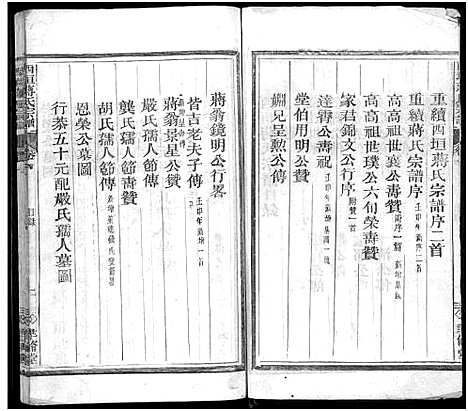 重續西垣蔣氏宗譜序二首
重續蔣氏宗譜序
高高祖世襄公壽贊
高高祖世璞公六旬榮壽贊
家君錦文公行序 附贊一首
達齋公壽祝
堂伯用明公贊
嫻兒呈勲公傳
蔣翁鏡明公行畧
皆吉老夫子傳
蔣翁景星公贊
嚴氏孺人傳
龔氏孺人節壽贊
胡氏孺人節傳
恩榮公墓圖
行恭五十元配嚴氏孺人墓圖
西垣蔣氏宗譜
目錄